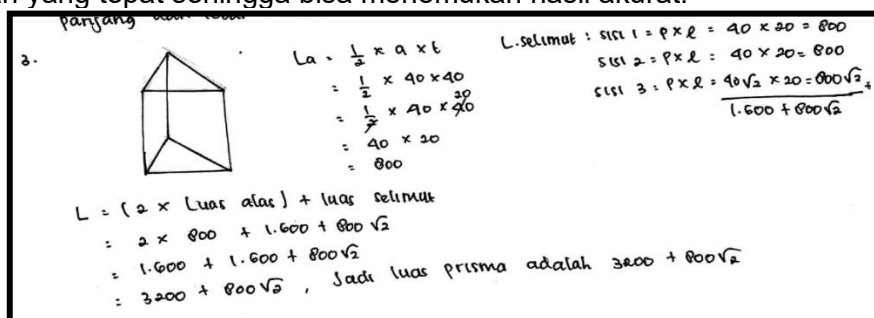 yang tepat sehingga bisa menemukan hasil akurat.
panjang dan lebar.
3.
La = 1/2 × a × t
= 1/2 × 40 × 40
= 1/2 × 40 × 40 20
= 40 × 20
= 800
L.selimut : sisi 1 = p × l = 40 × 20 = 800
sisi 2 = p × l = 40 × 20 = 800
sisi 3 = p × l = 40√2 × 20 = 800√2 +
1.600 + 800√2
L = (2 × Luas alas) + luas selimut
= 2 × 800 + 1.600 + 800√2
= 1.600 + 1.600 + 800√2
= 3200 + 800√2 , Jadi luas prisma adalah 3200 + 800√2